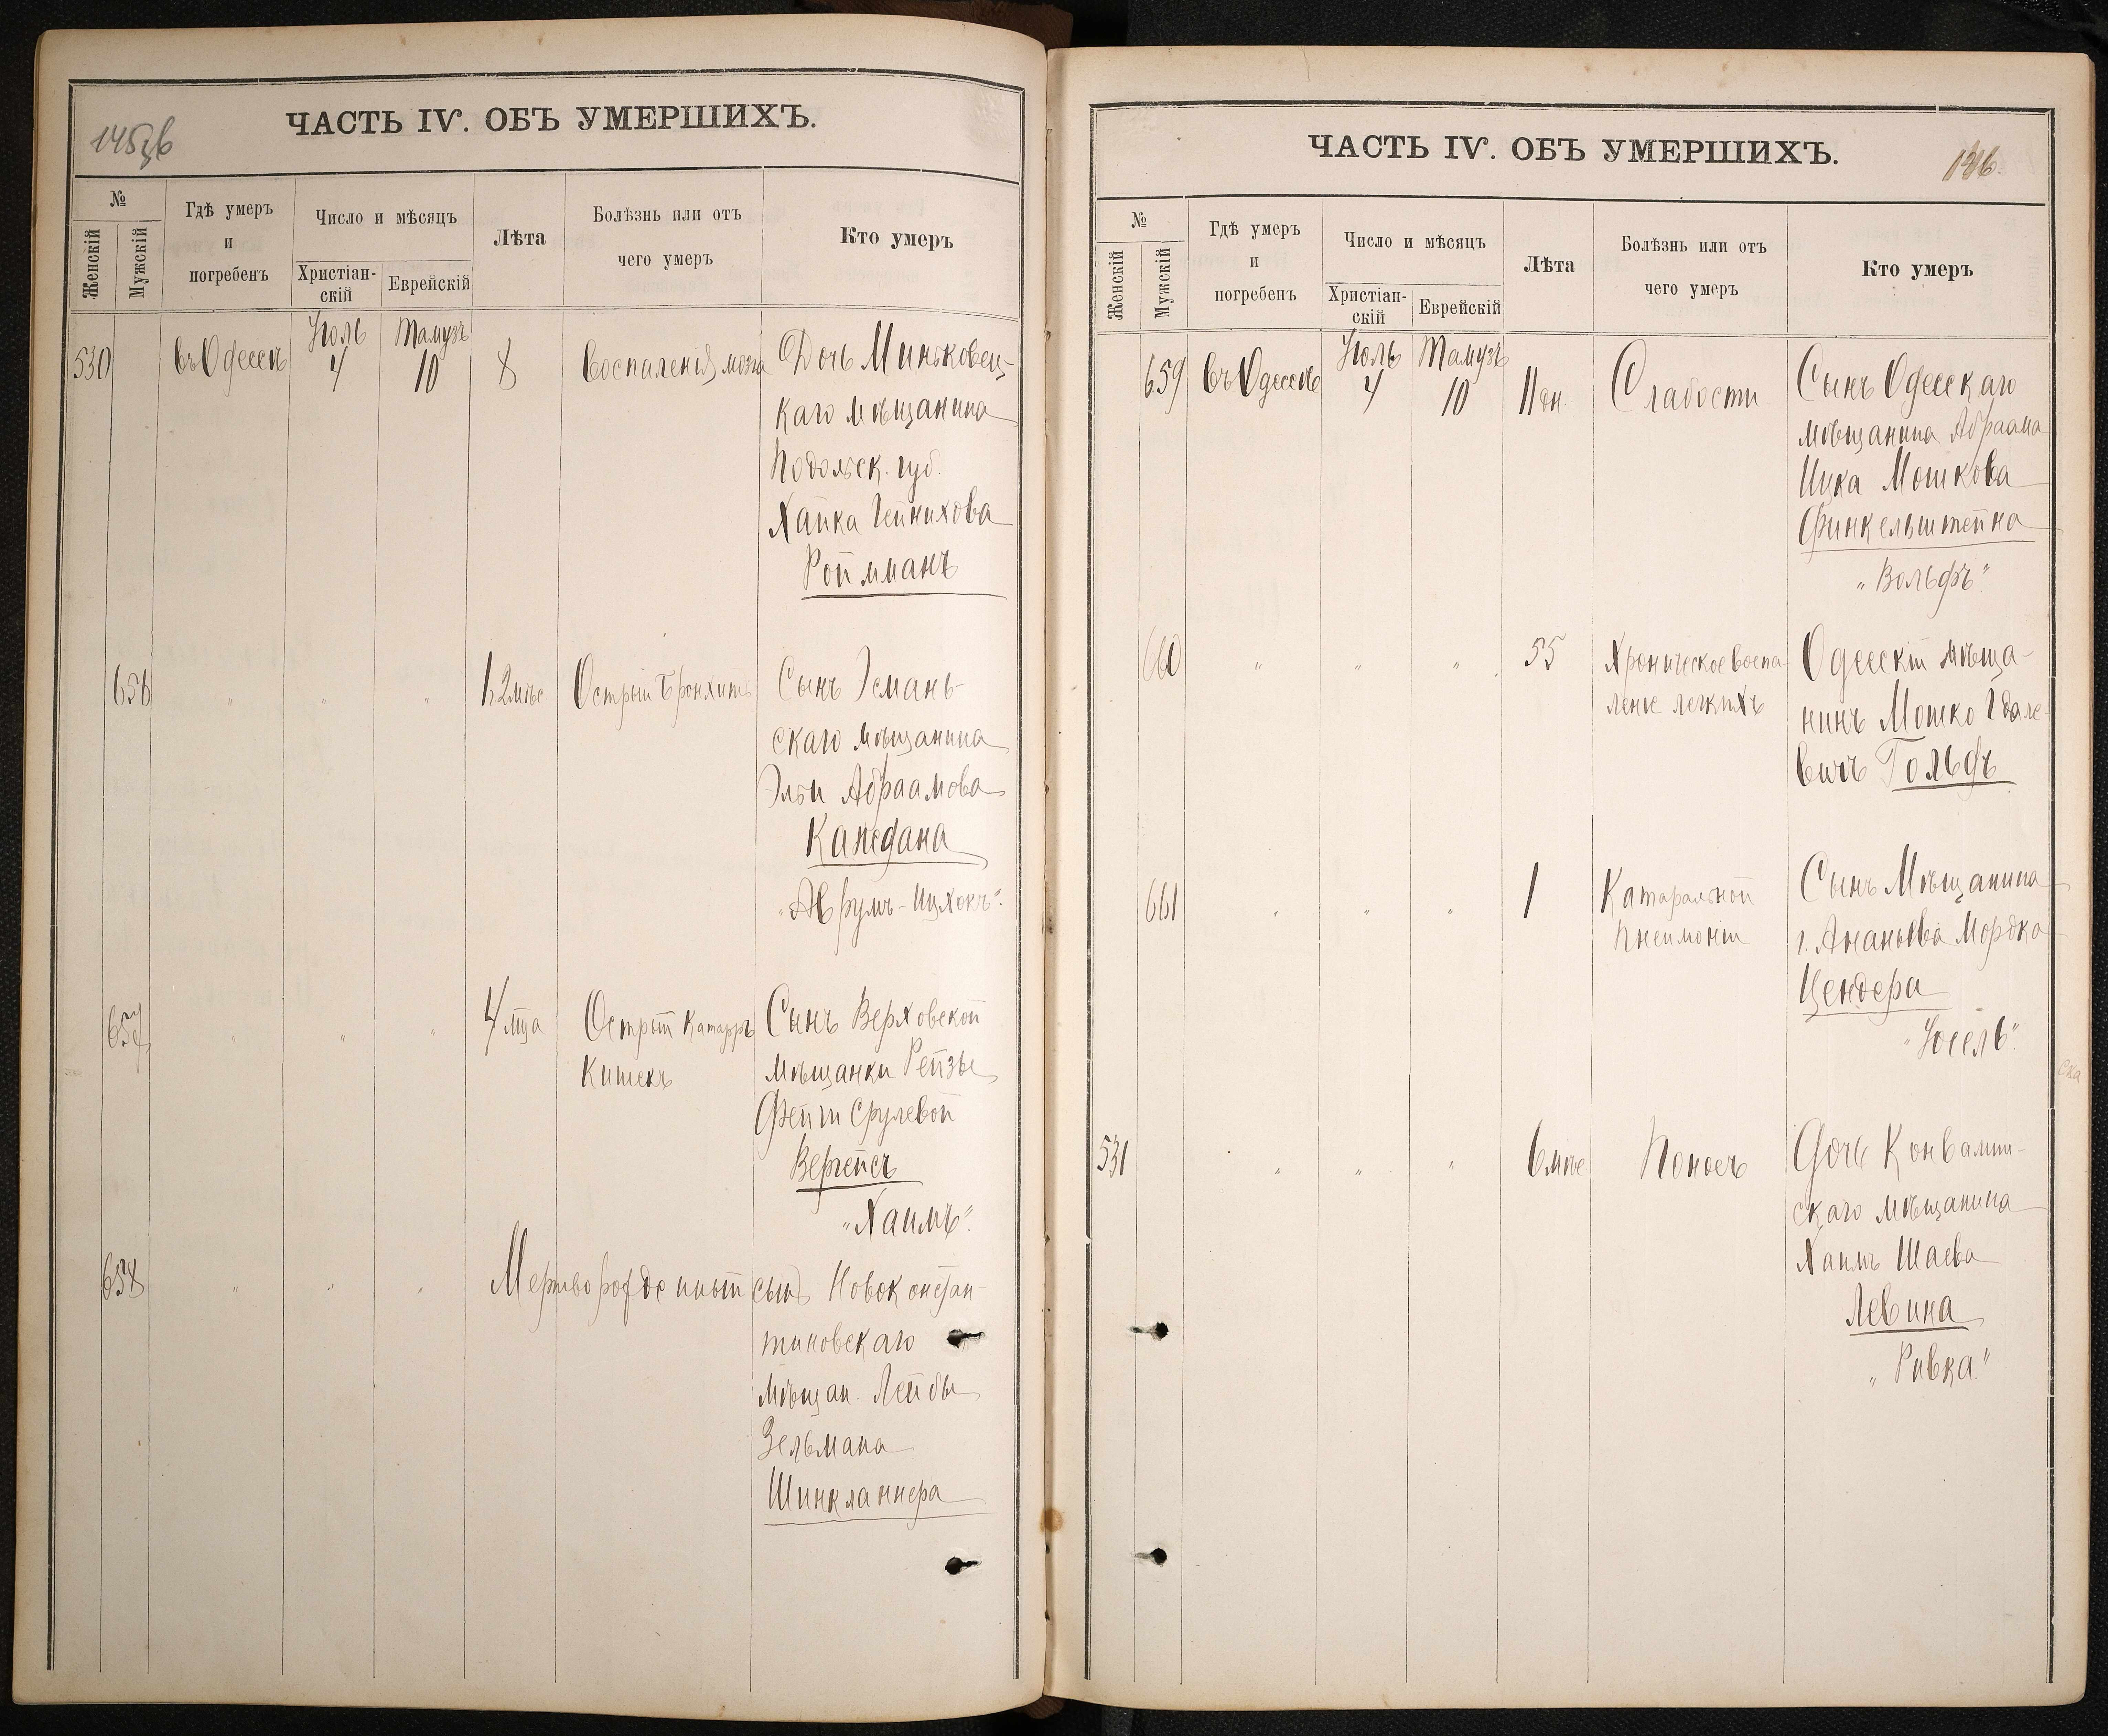 ЧАСТЬ IV. ОБЪ УМЕРШИХЪ.
№
Женскій
Мужскій
Гдѣ умеръ
и
погребенъ
Число и мѣсяцъ
Христіан-
скій
Еврейскій
Лѣта
Болѣзнь или отъ
чего умеръ
Кто умеръ
Іюль Тамузъ
530 въ Одессѣ 4 10 8 Воспаленія мозга Дочь Миньковец-
каго мѣщанина
Подольск. губ.
Хайка Гейнихова
Ройтманъ
656 " " " 1,2 мѣс. Острый Бронхитъ Сынъ Исмань-
скаго мѣщанина
Эльи Абраамова
"Аврумъ-Ицхокъ".
657 " " " 4 мца Острый катарръ Сынъ Верховской
Кишекъ мѣщанки Рейзы
Фейги Срулевой
"Хаимъ".
658 " " " Мертворожденный сынъ Новоконстан-
тиновскаго
мѣщан. Лейбы
Зельмана
Шинкланнера
ЧАСТЬ IV. ОБЪ УМЕРШИХЪ.
146.
№
Женскій
Мужскій
Гдѣ умеръ
и
погребенъ
Число и мѣсяцъ
Христіан-
скій
Еврейскій
Лѣта
Болѣзнь или отъ
чего умеръ
Кто умеръ
Іюль Тамузъ
659 въ Одессѣ 4 10 11 дн. Слабости Сынъ Одесскаго
мѣщанина Абраама
Ицка Мошкова
Финкельштейна
"Вольфъ".
660 " " " 55 Хроническое воспа- Одесскій мѣща-
леніе легкихъ нинъ Мошко Гдале-
вичъ Гольфъ
661 " " " 1 Катаральной Сынъ Мѣщанина
Пнеимоніи г. Ананьева Мордка
Цендера
"Іосель".
531 " " " 6 мѣс Поносъ Дочь Конвалиш-
скаго мѣщанина
Хаимъ Шаева
Левина
"Ривка."